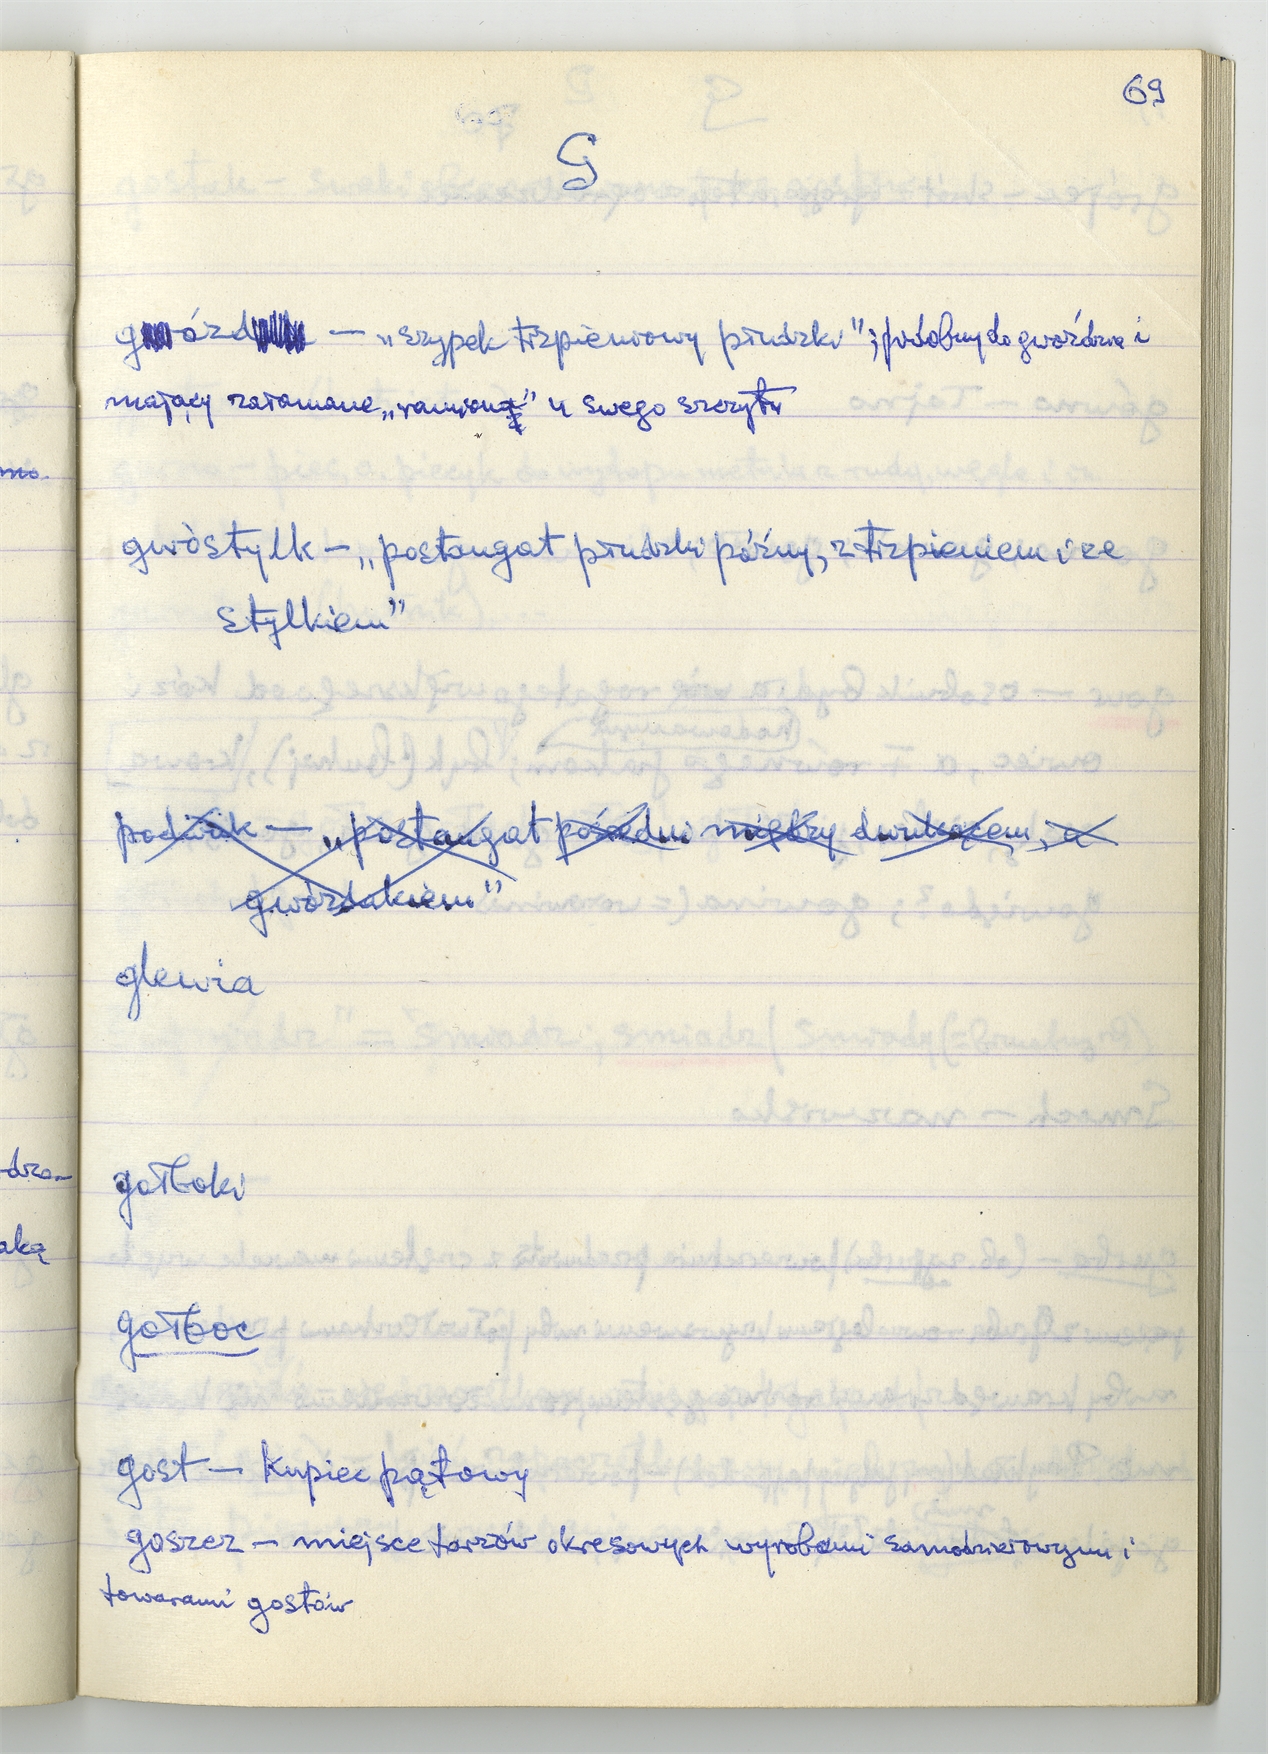 69
G
gwózd — „szypek trzpieniowy prudzki”; podobny do gwoździa i
mający załamane „ramiona” u swego szczytu
gwòstylk – „postangat prudzki późny, z trzpieniem i ze
stylkiem”
podwik — „postangat pośredni między dwukącem, a
gwózdakiem”
glewia
gołboki
gołboc
gost – kupiec pątowy
goszcz – miejsce tarzów okresowych wyrobami samodziełowymi i
towarami gostów
mo.
-dze-
aką